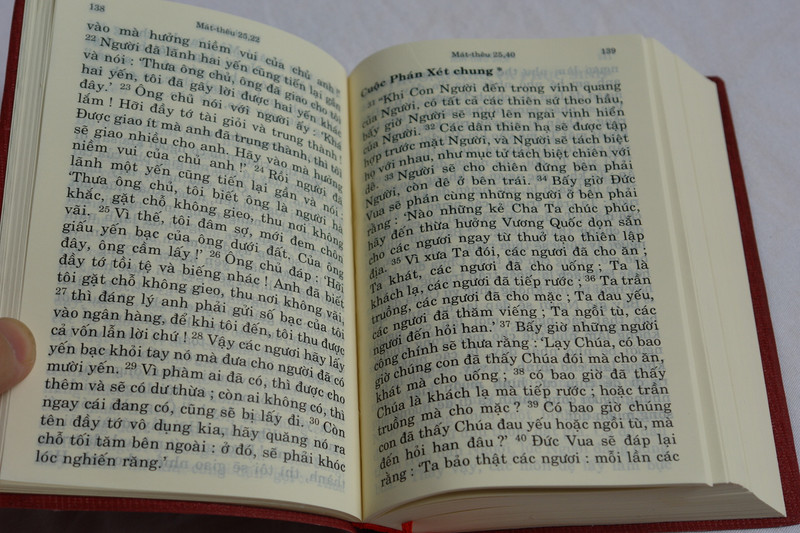 138
Mát-thêu 25,22
vào mà hưởng niềm vui của chủ anh !'
22 Người đã lãnh hai yến cũng tiến lại gần
và nói : 'Thưa ông chủ, ông đã giao cho tôi
hai yến, tôi đã gây lời được hai yến khác
đây.' 23 Ông chủ nói với người ấy : 'Khá
lắm ! Hỡi đầy tớ tài giỏi và trung thành !
Được giao ít mà anh đã trung thành, thì tôi
sẽ giao nhiều cho anh. Hãy vào mà hưởng
niềm vui của chủ anh !' 24 Rồi người đã
lãnh một yến cũng tiến lại gần và nói :
'Thưa ông chủ, tôi biết ông là người hà
khắc, gặt chỗ không gieo, thu nơi không
vãi. 25 Vì thế, tôi đâm sợ, mới đem chôn
giấu yến bạc của ông dưới đất. Của ông
đây, ông cầm lấy !' 26 Ông chủ đáp : 'Hỡi
đầy tớ tồi tệ và biếng nhác ! Anh đã biết
tôi gặt chỗ không gieo, thu nơi không vãi,
27 thì đáng lý anh phải gửi số bạc của tôi
vào ngân hàng, để khi tôi đến, tôi thu được
cả vốn lẫn lời chứ ! 28 Vậy các ngươi hãy lấy
yến bạc khỏi tay nó mà đưa cho người đã có
mười yến. 29 Vì phàm ai đã có, thì được cho
thêm và sẽ có dư thừa ; còn ai không có, thì
ngay cái đang có, cũng sẽ bị lấy đi. 30 Còn
tên đầy tớ vô dụng kia, hãy quăng nó ra
chỗ tối tăm bên ngoài : ở đó, sẽ phải khóc
lóc nghiến răng.'
Mát-thêu 25,40
139
Cuộc Phán Xét chung *
31 "Khi Con Người đến trong vinh quang
của Người, có tất cả các thiên sứ theo hầu,
bấy giờ Người sẽ ngự lên ngai vinh hiển
của Người. 32 Các dân thiên hạ sẽ được tập
hợp trước mặt Người, và Người sẽ tách biệt
họ với nhau, như mục tử tách biệt chiên với
dê. 33 Người sẽ cho chiên đứng bên phải
Người, còn dê ở bên trái. 34 Bấy giờ Đức
Vua sẽ phán cùng những người ở bên phải
rằng : 'Nào những kẻ Cha Ta chúc phúc,
hãy đến thừa hưởng Vương Quốc dọn sẵn
cho các ngươi ngay từ thuở tạo thiên lập
địa. 35 Vì xưa Ta đói, các ngươi đã cho ăn ;
Ta khát, các ngươi đã cho uống ; Ta là
khách lạ, các ngươi đã tiếp rước ; 36 Ta trần
truồng, các ngươi đã cho mặc ; Ta đau yếu,
các ngươi đã thăm viếng ; Ta ngồi tù, các
ngươi đến hỏi han.' 37 Bấy giờ những người
công chính sẽ thưa rằng : 'Lạy Chúa, có bao
giờ chúng con đã thấy Chúa đói mà cho ăn,
khát mà cho uống ; 38 có bao giờ đã thấy
Chúa là khách lạ mà tiếp rước ; hoặc trần
truồng mà cho mặc ? 39 Có bao giờ chúng
con đã thấy Chúa đau yếu hoặc ngồi tù, mà
đến hỏi han đâu ?' 40 Đức Vua sẽ đáp lại
rằng : 'Ta bảo thật các ngươi : mỗi lần các